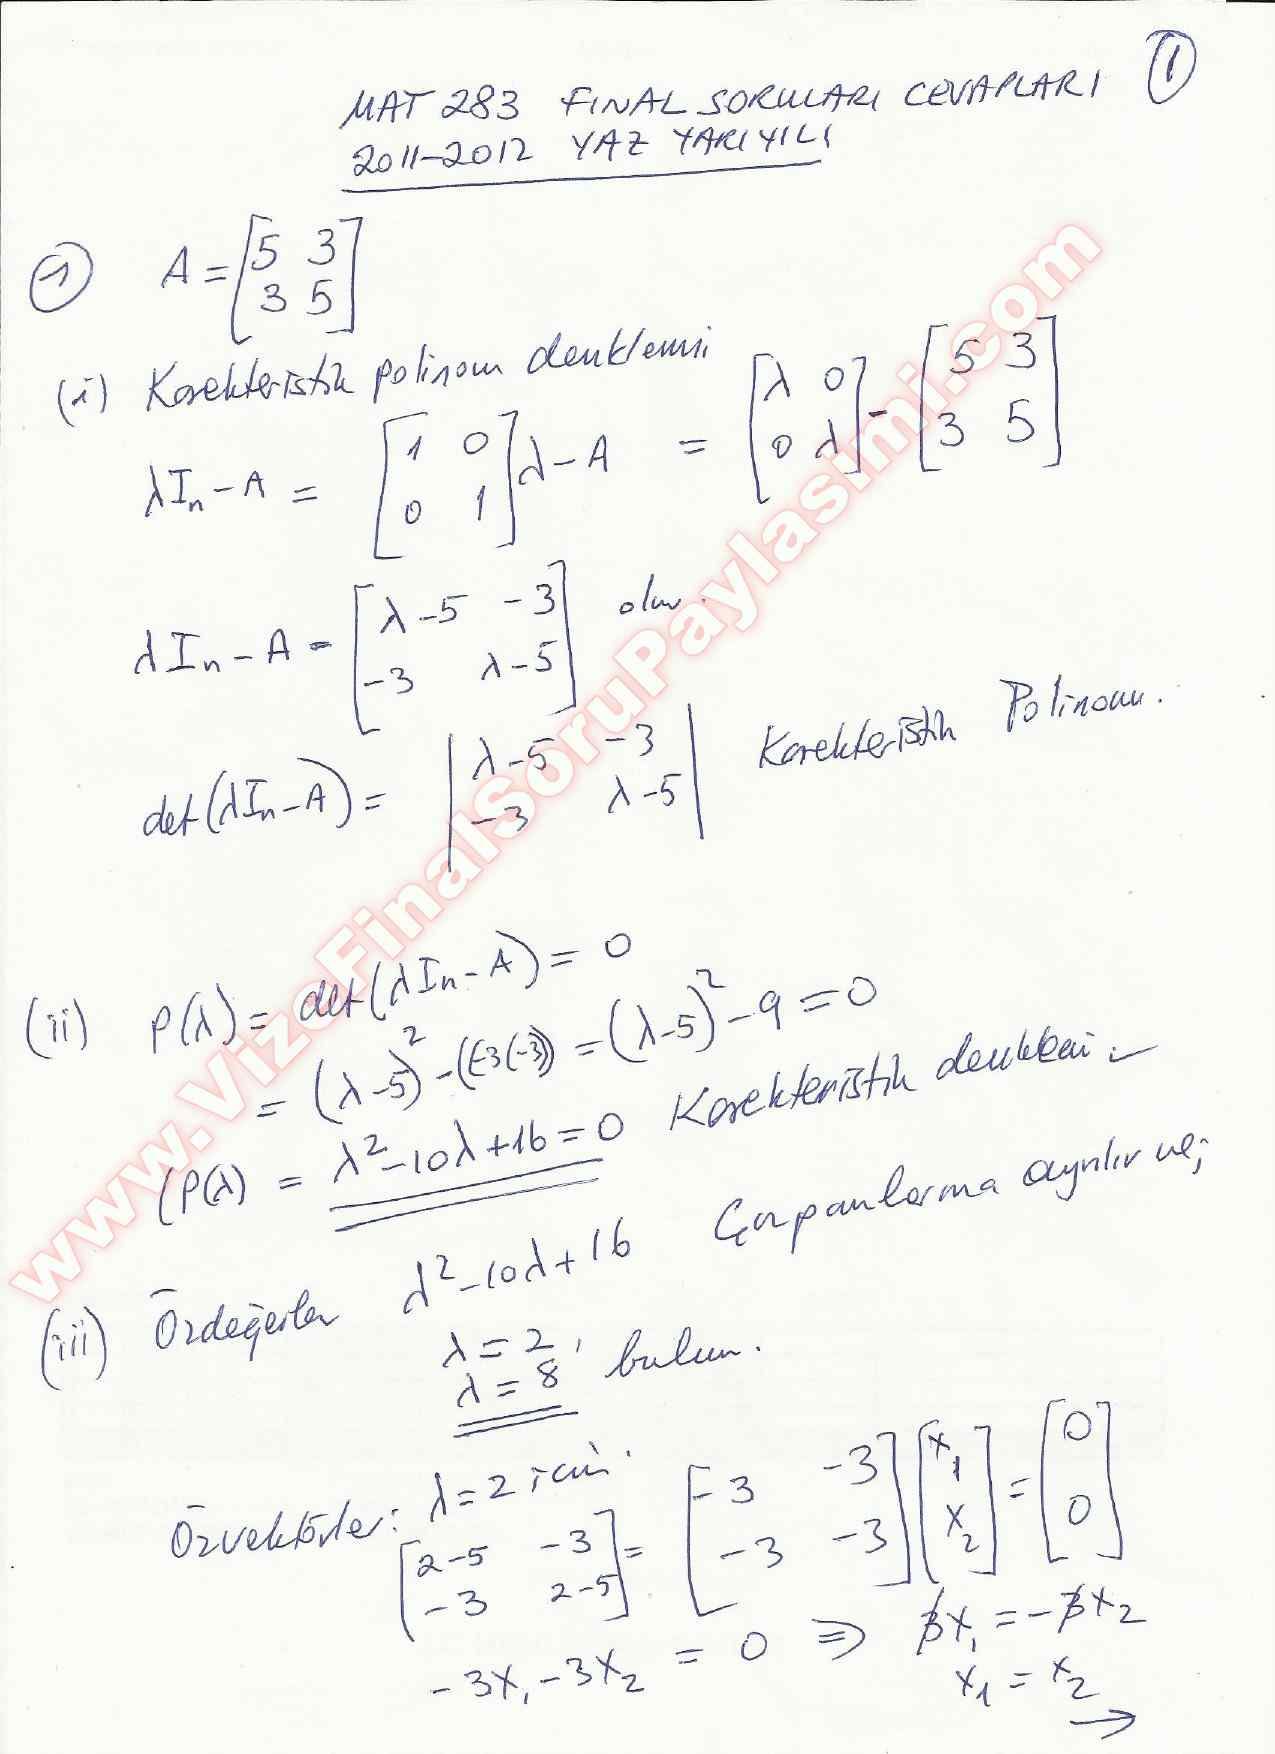 1
MAT 283 FINAL SORULARI CEVAPLARI
2011-2012 YAZ YARIYILI
1 A = [5 3
3 5]
(i) Karekteristik polinom denklemi
λIn - A = [1 0
0 1] λ - A = [λ 0
0 λ] - [5 3
3 5]
λIn - A = [λ-5 -3
-3 λ-5] olur.
det(λIn-A) = |λ-5 -3
-3 λ-5| Karekteristik Polinom.
(ii) P(λ) = det(λIn-A) = 0
= (λ-5)² - ((-3(-3)) = (λ-5)² - 9 = 0
(P(λ) = λ² - 10λ + 16 = 0 Karekteristik denklem
(iii) Özdeğerler λ² - 10λ + 16 Çarpanlarına ayrılır ve;
λ = 2,
λ = 8 bulunur.
Özvektörler: λ = 2 için.
[2-5 -3
-3 2-5] = [-3 -3
-3 -3] [x1
x2] = [0
0]
-3x1 - 3x2 = 0 ⇒ 3x1 = -3x2
x1 = x2
→
www.VizeFinalSoruPaylasimi.com